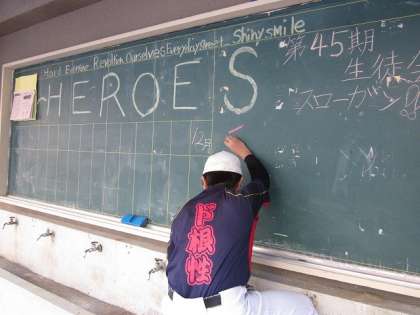 Hard Extreme Revolution Ourselves Everyday Smart Shiny smile
HEROES
第45期
生徒会
スローガン
12月
ド根性